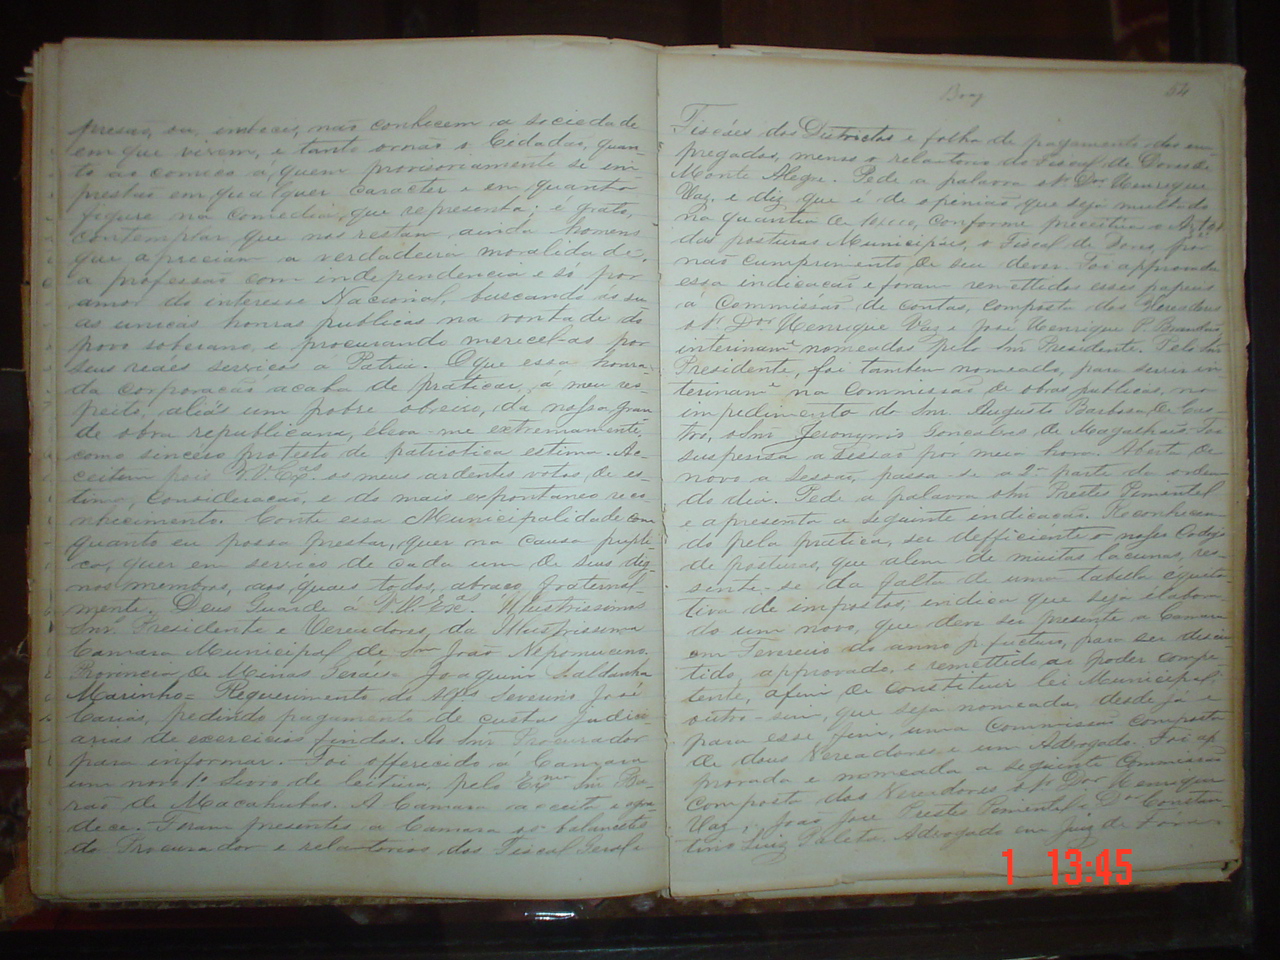 presão, ou, imbecis, não conhecem a sociedade
em que vivem, e tanto o Cidadão, quan-
to ás comico á, quem provisoriamente se im
prestão em qualquer caracter e em quanto
figure na comedia, que representa; é grato,
contemplar que nos restam ainda homens
que apreciam a verdadeira moralidade,
a professão com independencia e só por
amor do interesse Nacional, buscando as su
as unicas honras publicas na vontade do
povo soberano, e procurando mercel-as por
seus reáes serviços a Patria. O que essa honra
da corporação acaba de práticar, a meu res
peito, aliás um pobre obreiro, da nossa gran
de obra republicana, eleva-me extremamente,
como sincero protesto de patriotica estima. Ac
ceitem pois V.V. Exas. os meus ardentes votos, de es-
tima, consideração, e do mais expontaneo reco
nhecimento. Conte essa Municipalidade com
quanto eu possa prestar, quer na causa publi-
ca, quer em serviço de cada um de seus dig
nos membros, aos quaes todos, abraço, fraternal
mente. Deus Guarde á V.V. Exas. Illustrissimos
Snr. Presidente e Vereadores, da Illustrissima
Camara Municipal de Sm. João Nepomuceno.
Provincia, de Minas Geráes. Joaquim Saldanha
Marinho = Requerimento do Severino José
pedindo pagamento de custas Judici
arias de exercicios findos. Ao Snr Procurador
para informar. Foi offerecido a Camara
um novo 1º Livro de leitura, pelo Exmo. Snr. Ba-
rão de Macahubas. A Camara acceita e agra
dece. Foram presentes a Camara os balancetes
do Procurador e relatorios dos Fiscal Geral e
54
Fiscáes dos Districtos e folha de pagamento dos em
pregados, menos o relatorio do Fiscal de Dores de
Monte Alegre. Pede a palavra o Sr. Dor. Henrique
Vaz, e diz que é de openião que seja multado
na quantia de conforme preceitua o Art.
das posturas Municipáes, o Fiscal de Dores, por
não cumprimento de seu dever. Foi approvada
essa indicação e foram remettidos esses papeis
á Commissão, de contas, composta dos Vereadores
o Sr. Dor. Henrique Vaz e José Henrique P. Brandão,
interinamte. nomeados pelo Snr Presidente. Pelo Snr
Presidente, foi tambem nomeado, para servir in-
terinamte. na Commissão de obras publicas, no
impedimento do Snr. Augusto Barbosa, de Cas-
tro, o Snr Jeronymo Gonçalves de Magalhães. Foi
suspensa a sessão por meia hora. Aberta de
novo a Sessão, passa-se a 2ª parte da ordem
do dia. Pede a palavra o Snr Prestes Pimentel
e apresenta a seguinte indicação. Reconhecen
do pela pratica, ser defficiente o nosso Codigo
de posturas, que alem de muitas lacunas, res-
sente-se da falta de uma tabella équita-
tiva de impostos, indica que seja elabora
do um novo, que deve ser presente a Camara
em Fevereiro do anno p. futuro, para ser discu
tido, approvado, e remettido ao poder compe-
tente, afim de constituir lei Municipal;
outro-sim, que seja nomeada, desde já e
para esse fim, uma Commissão composta
de dous Vereadores e um Advogado. Foi ap
provada e nomeada a seguinte Commissão
composta dos Vereadores o Sr. Dor. Henrique
Vaz, João José Prestes Pimentel e Dor. Constan
tino Luiz Paleta. Advogado em Juiz de Fóra.
1 13:45